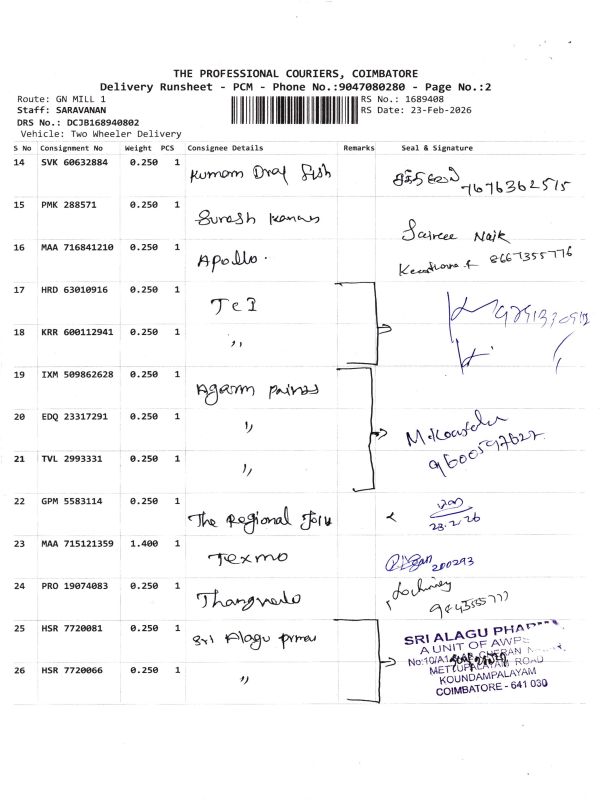 THE PROFESSIONAL COURIERS, COIMBATORE
Delivery Runsheet - PCM - Phone No.:9047080280 - Page No.:2
Route: GN MILL 1
RS No.: 1689408
Staff: SARAVANAN
RS Date: 23-Feb-2026
DRS No.: DCJB168940802
Vehicle: Two Wheeler Delivery
S No Consignment No Weight PCS Consignee Details Remarks Seal & Signature
14 SVK 60632884 0.250 1
7676362515
15 PMK 288571 0.250 1 Suresh
Naik
16 MAA 716841210 0.250 1 Apollo.
8667355776
17 HRD 63010916 0.250 1 TCI
18 KRR 600112941 0.250 1 ,,
19 IXM 509862628 0.250 1 Agarm
20 EDQ 23317291 0.250 1 ,,
9600597622
21 TVL 2993331 0.250 1 ,,
22 GPM 5583114 0.250 1 The Regional
23.2.26
23 MAA 715121359 1.400 1 Texmo
200293
24 PRO 19074083 0.250 1
25 HSR 7720081 0.250 1 Sri Alagu
SRI ALAGU
A UNIT OF
METTUPALAYAM ROAD
26 HSR 7720066 0.250 1 ,,
KOUNDAMPALAYAM
COIMBATORE - 641 030